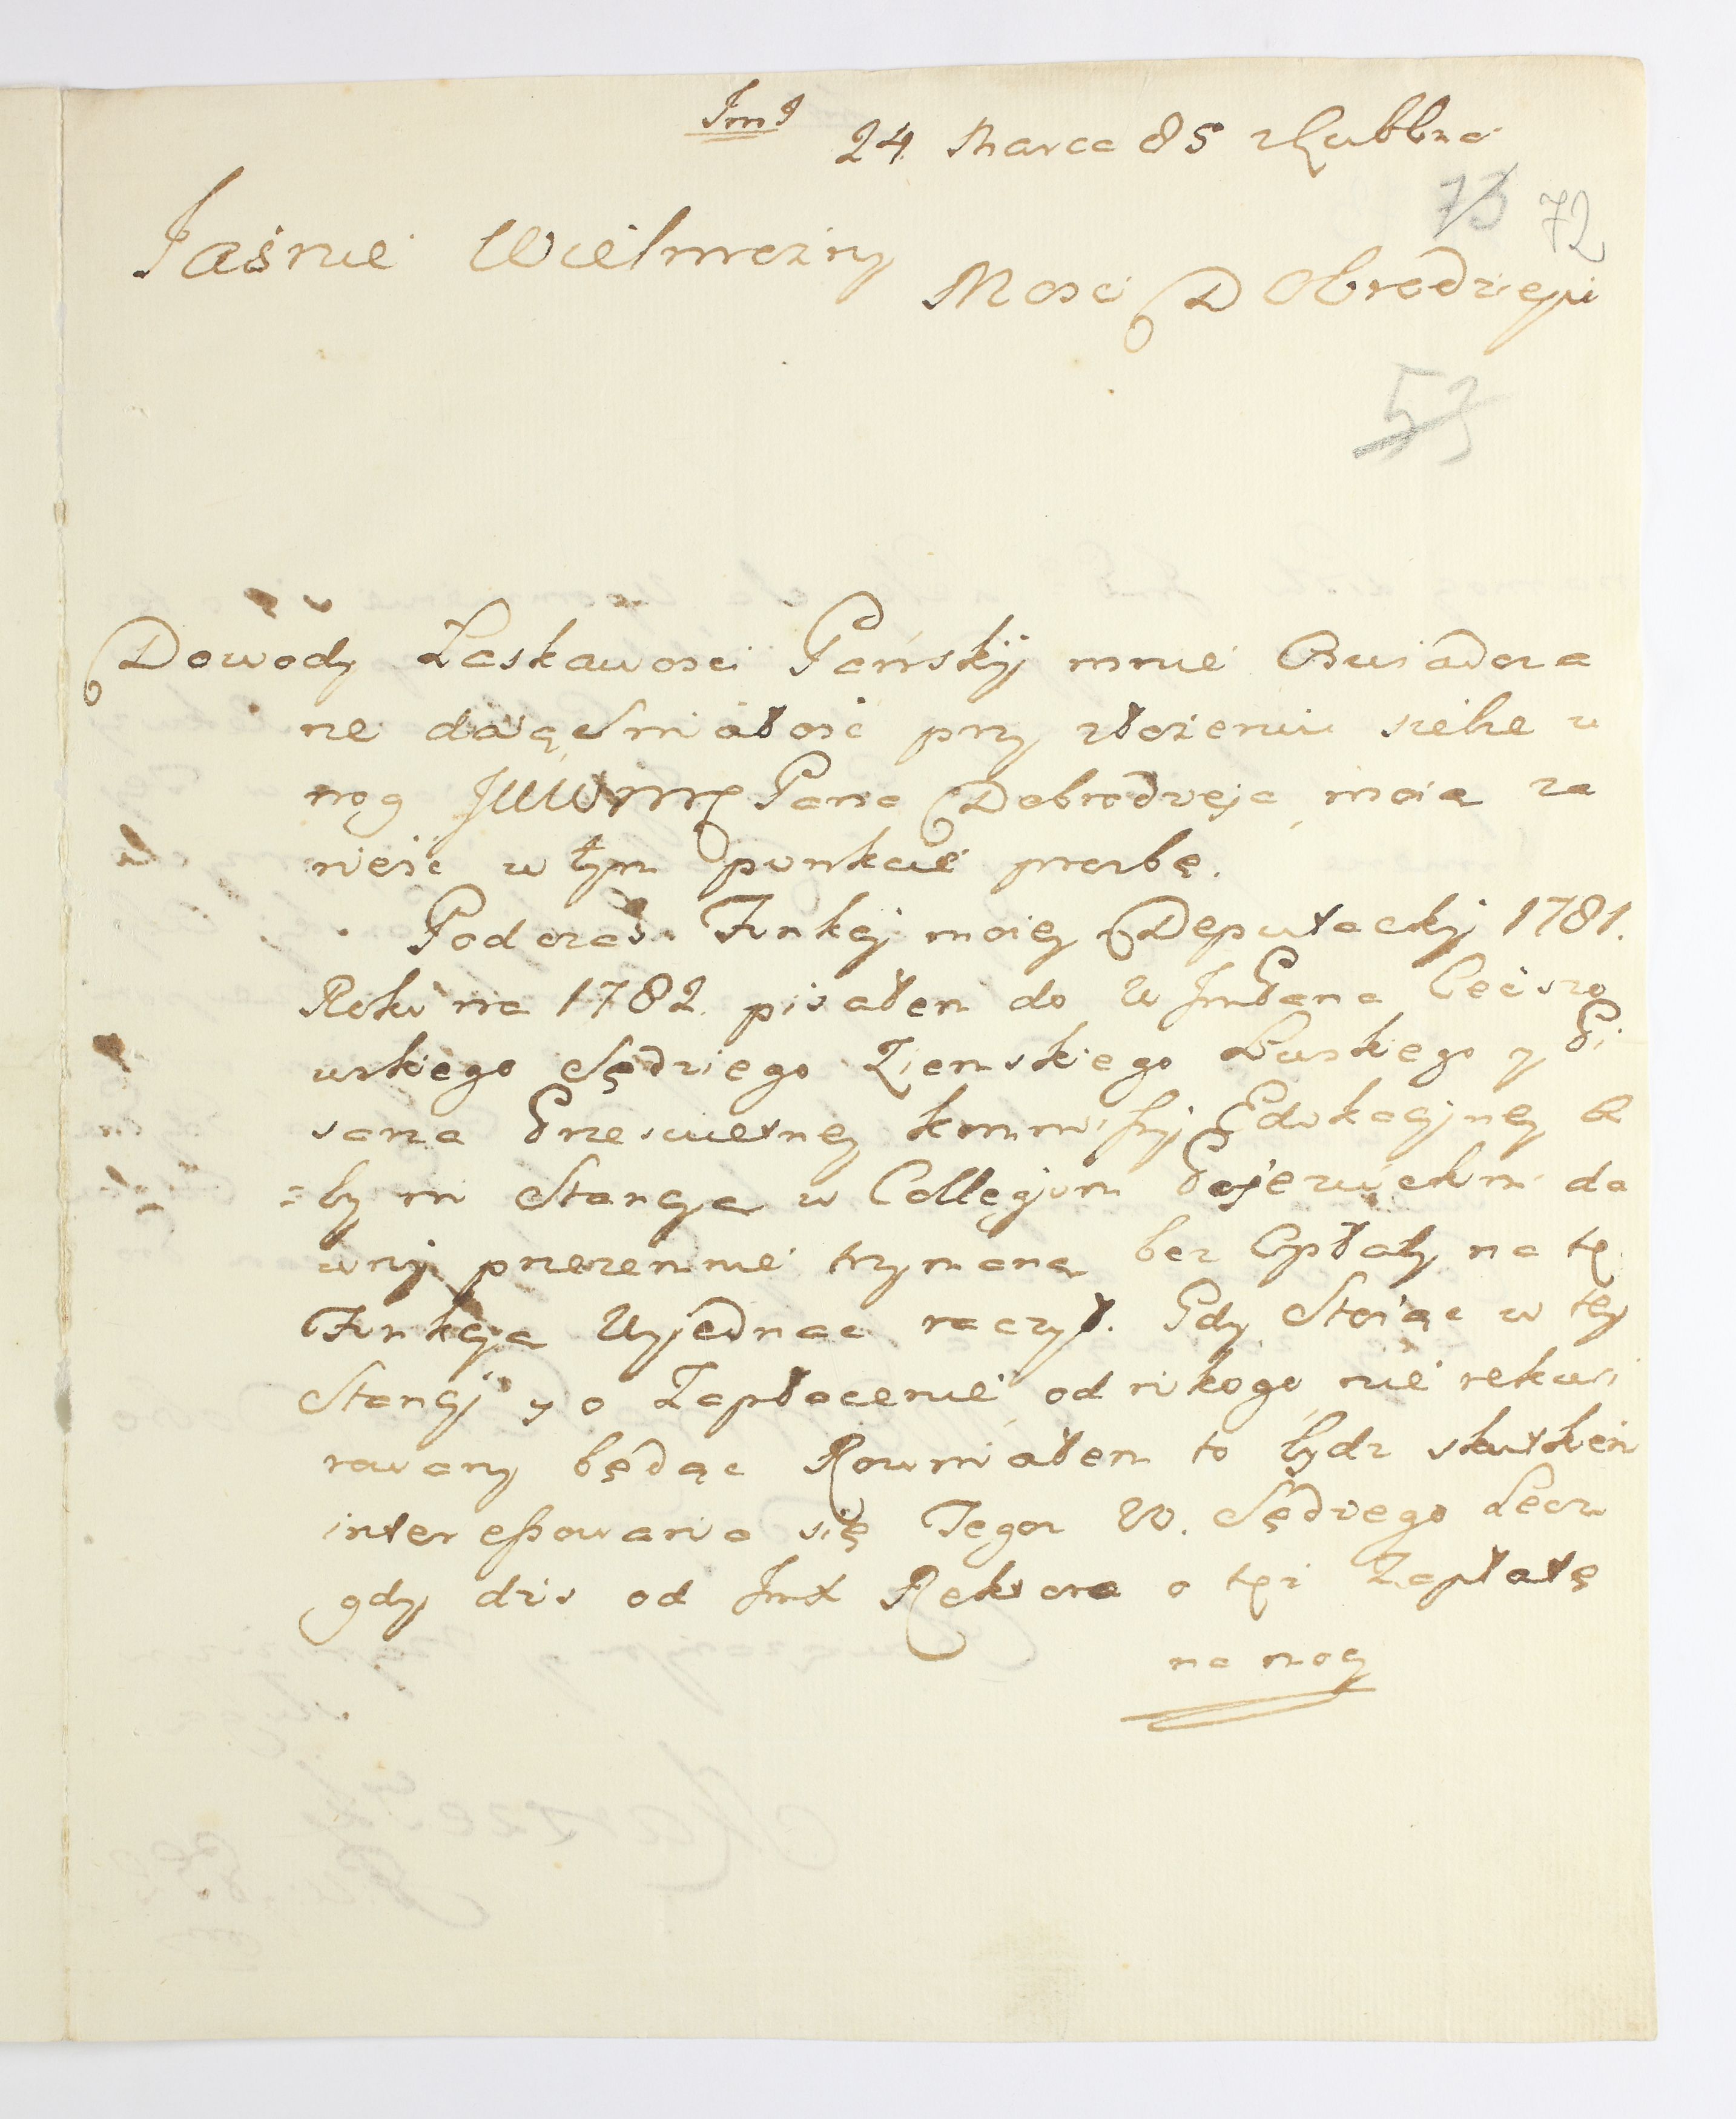 24 Marca 85 z Lublina
73 72
Jaśnie Wielmożny
Mosci Dobrodzieju
53
Dowody Łaskawosci Pańskij mnie Oswiadcza
ne daią Smiałość przy złożeniu siebie u
nog JWWMP Pana Dobrodzieja moią za
nieść w tym punkcie prozbę.
Podczas Funkcj moiey Deputackij 1781.
Roku na 1782. pisałem do W JmPana Cieciszo
wskiego Sędziego Ziemskiego Łuskiego y Pi
sarza Przeswietney kommissyj Edukacyjney a
=by mi Stancyą w Collegium Pojezuickim da
wnij przezemnie trzymaną bez Opłaty na tę
Funkcją Wyjednac raczył. Gdy Stoiąc w tey
Stancj y o Zapłacenie od nikogo nie rekwi
rowany będąc Rozumiałem to bydz skutkiem
interessowania się Tegoz W. Sędziego Lecz
gdy dzis od Jmci Rektora o też Zapłatę
na mog